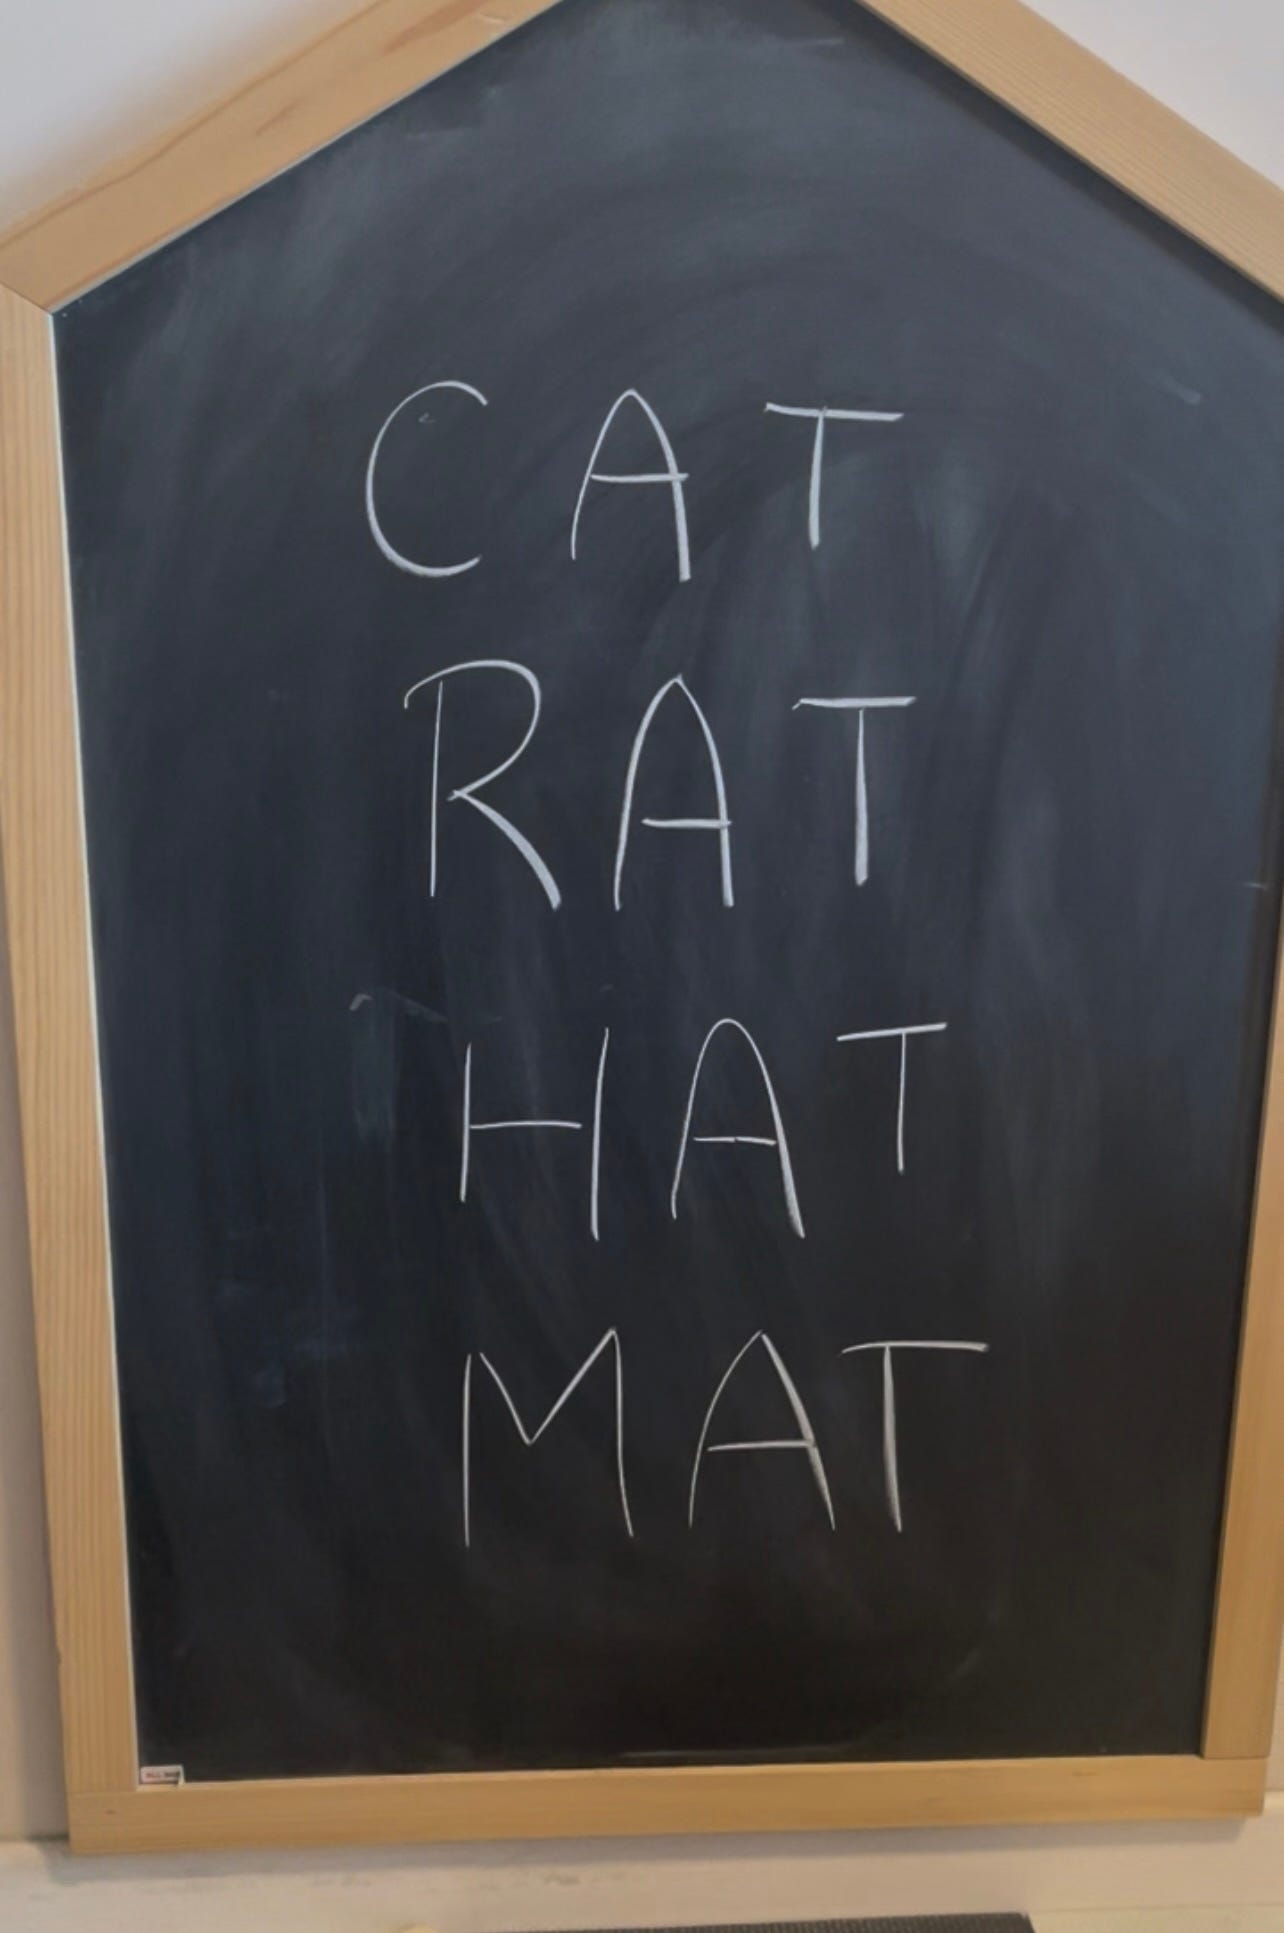 CAT
RAT
HAT
MAT